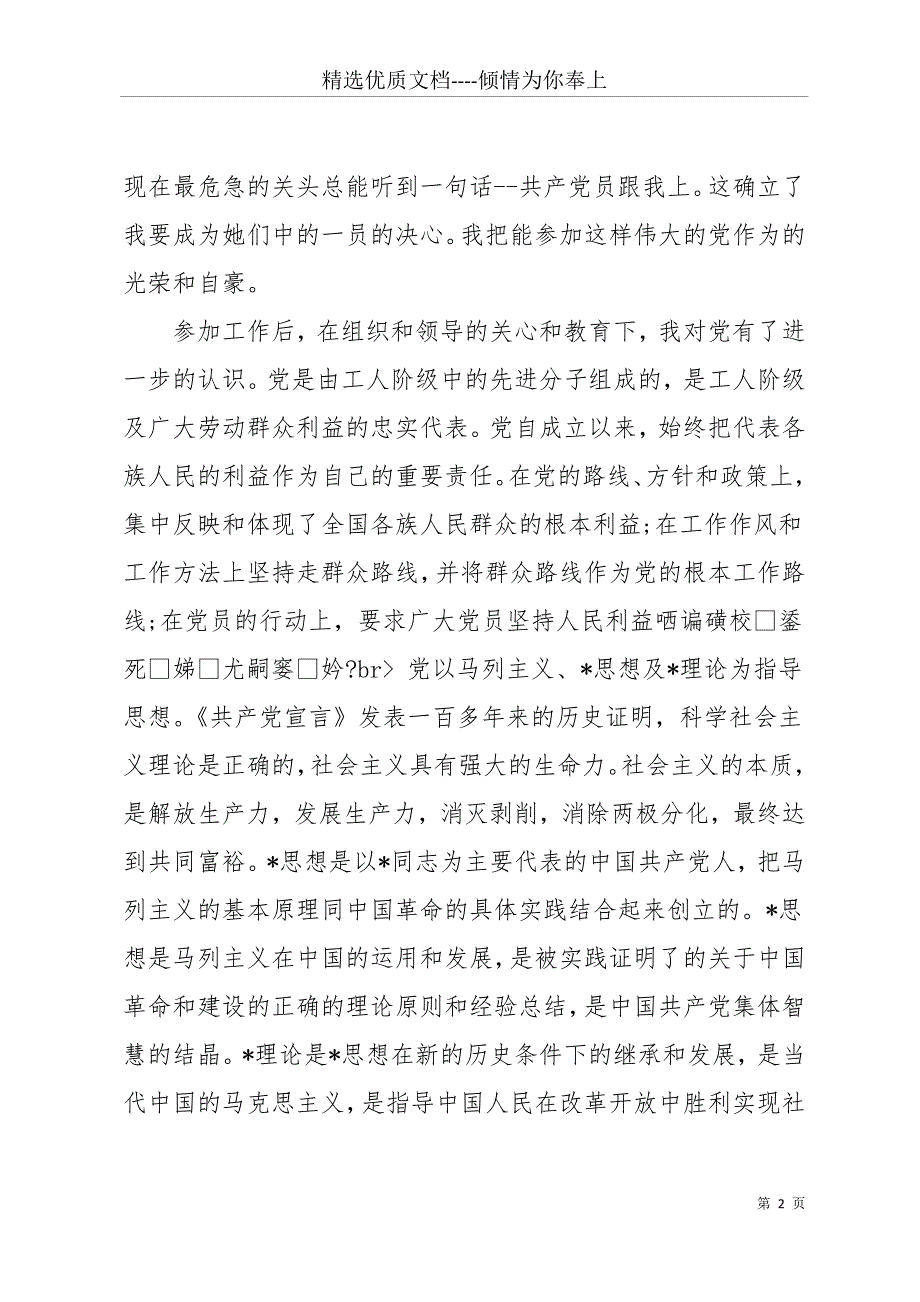 精选优质文档----倾情为你奉上
现在最危急的关头总能听到一句话--共产党员跟我上。这确立了
我要成为她们中的一员的决心。我把能参加这样伟大的党作为的
光荣和自豪。
参加工作后，在组织和领导的关心和教育下，我对党有了进
一步的认识。党是由工人阶级中的先进分子组成的，是工人阶级
及广大劳动群众利益的忠实代表。党自成立以来，始终把代表各
族人民的利益作为自己的重要责任。在党的路线、方针和政策上，
集中反映和体现了全国各族人民群众的根本利益;在工作作风和
工作方法上坚持走群众路线，并将群众路线作为党的根本工作路
线;在党员的行动上，要求广大党员坚持人民利益哂谝磺校□鋈
死□娣□尤嗣窭□妗?br> 党以马列主义、*思想及*理论为指导
思想。《共产党宣言》发表一百多年来的历史证明，科学社会主
义理论是正确的，社会主义具有强大的生命力。社会主义的本质，
是解放生产力，发展生产力，消灭剥削，消除两极分化，最终达
到共同富裕。*思想是以*同志为主要代表的中国共产党人，把马
列主义的基本原理同中国革命的具体实践结合起来创立的。*思
想是马列主义在中国的运用和发展，是被实践证明了的关于中国
革命和建设的正确的理论原则和经验总结，是中国共产党集体智
慧的结晶。*理论是*思想在新的历史条件下的继承和发展，是当
代中国的马克思主义，是指导中国人民在改革开放中胜利实现社
第 2 页